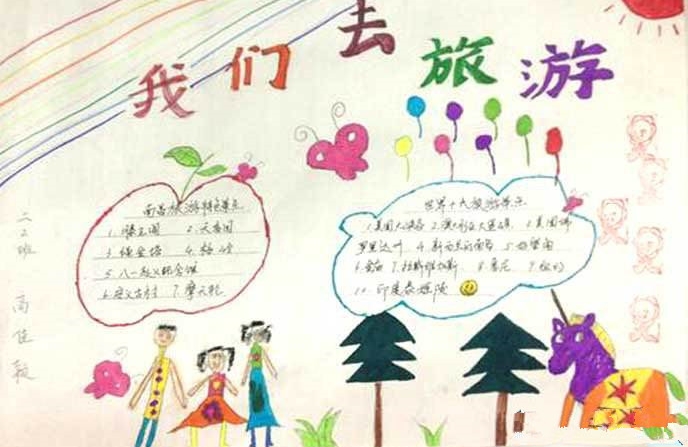 我们去旅游
南昌旅游特色景点
1.滕王阁 2.天香园
3.绳金塔 4.梅岭
5.八一起义纪念馆
6.安义古村 7.摩天轮
世界十大旅游景点
1.美国大峡谷 2.澳大利亚大堡礁 3.美国佛
罗里达州 4.新西兰的南岛 5.好望角
6.金庙 7.拉斯维加斯 8.悉尼 9.纽约
10.印度泰姬陵
二2班 高佳